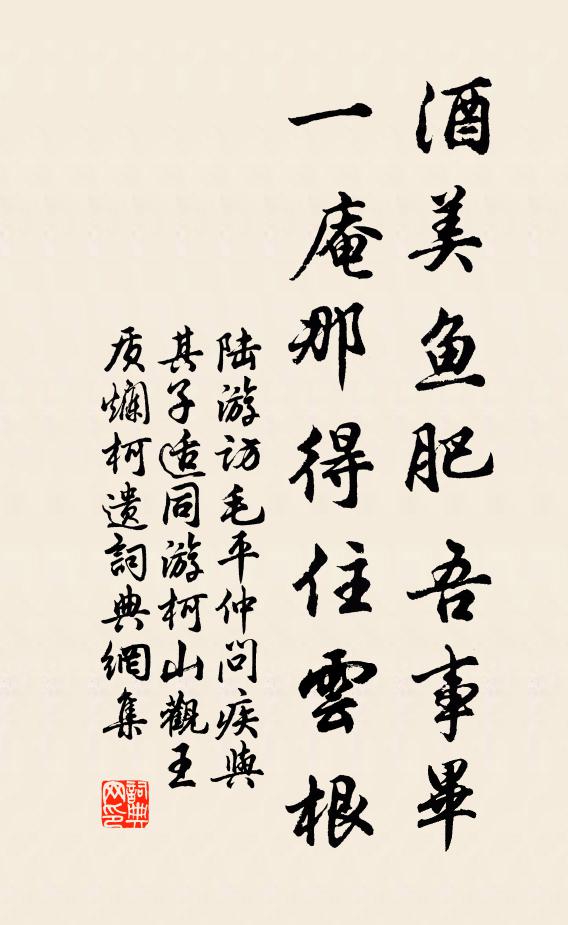 酒美鱼肥吾事畢
一庵那得住雲根
陆游访毛平仲问疾與
其子适同游柯山觀王
质爛柯遗詞典網集
詞典网印